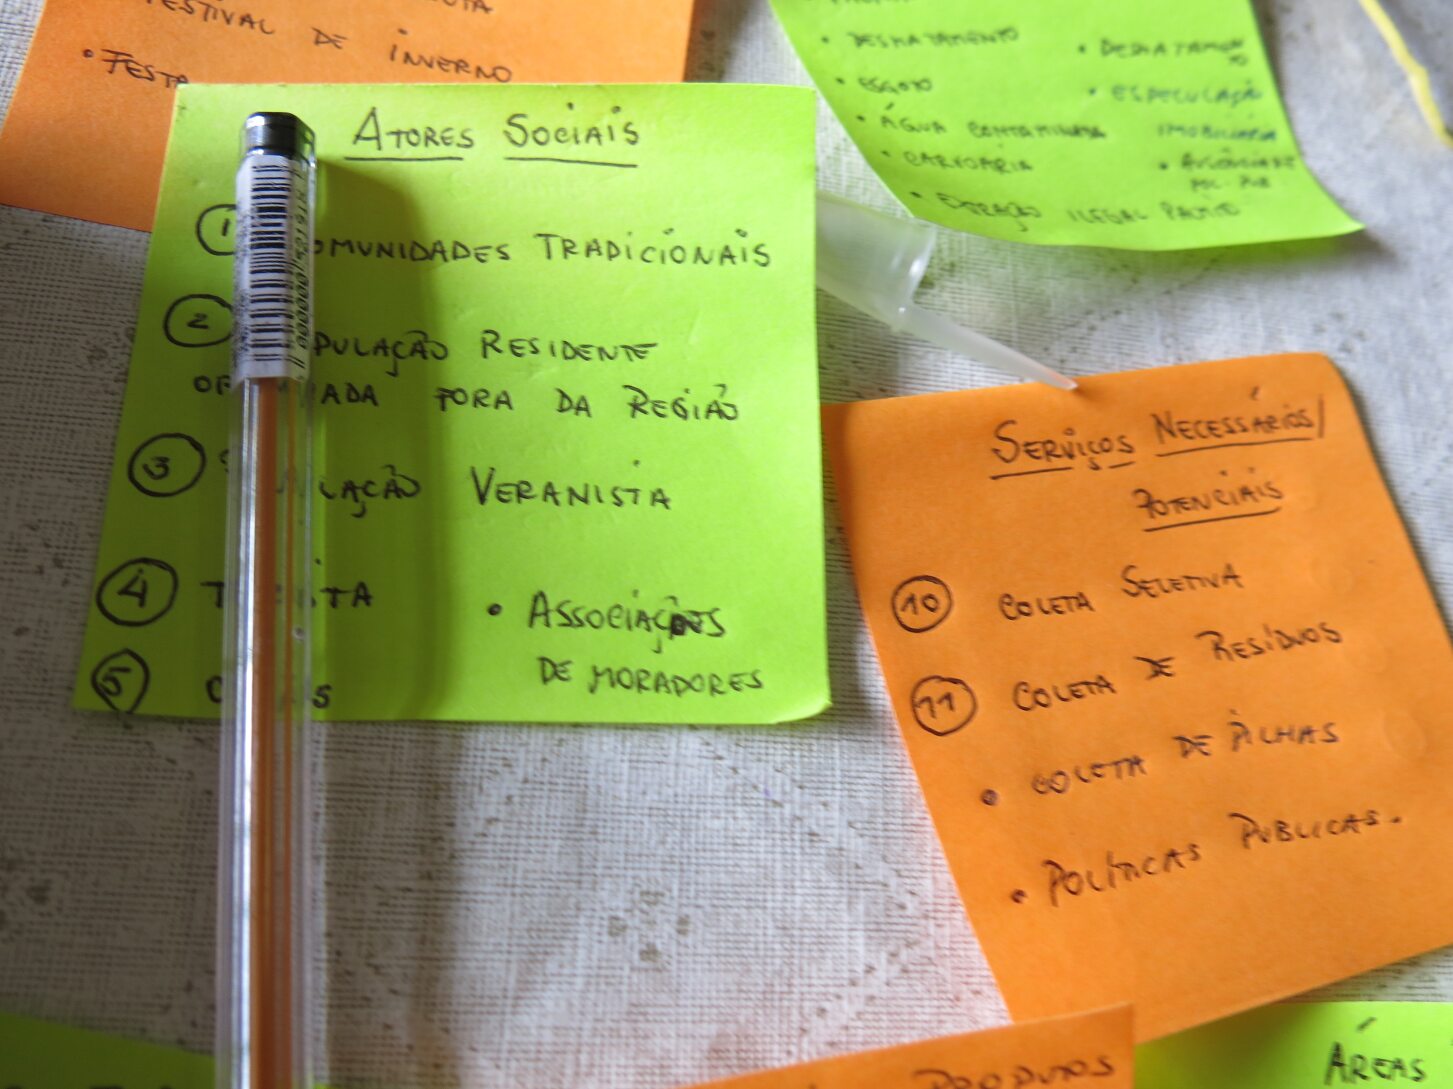 FESTIVAL DE INVERNO
• FESTA
• DESMATAMENTO
• ESGOTO
• ÁGUA CONTAMINADA
• CARVOARIA
• EXTRAÇÃO ILEGAL PALMITO
• ESPECULAÇÃO
IMOBILIÁRIA
ATORES SOCIAIS
1 OMUNIDADES TRADICIONAIS
2 PULAÇÃO RESIDENTE
FORA DA REGIÃO
3 LAÇÃO VERANISTA
4
5
• ASSOCIAÇÕES
DE MORADORES
SERVIÇOS NECESSÁRIOS/
POTENCIAIS
10 COLETA SELETIVA
11 COLETA DE RESÍDUOS
• COLETA DE PILHAS
• POLÍTICAS PUBLICAS.
PRODUTOS
ÁREAS